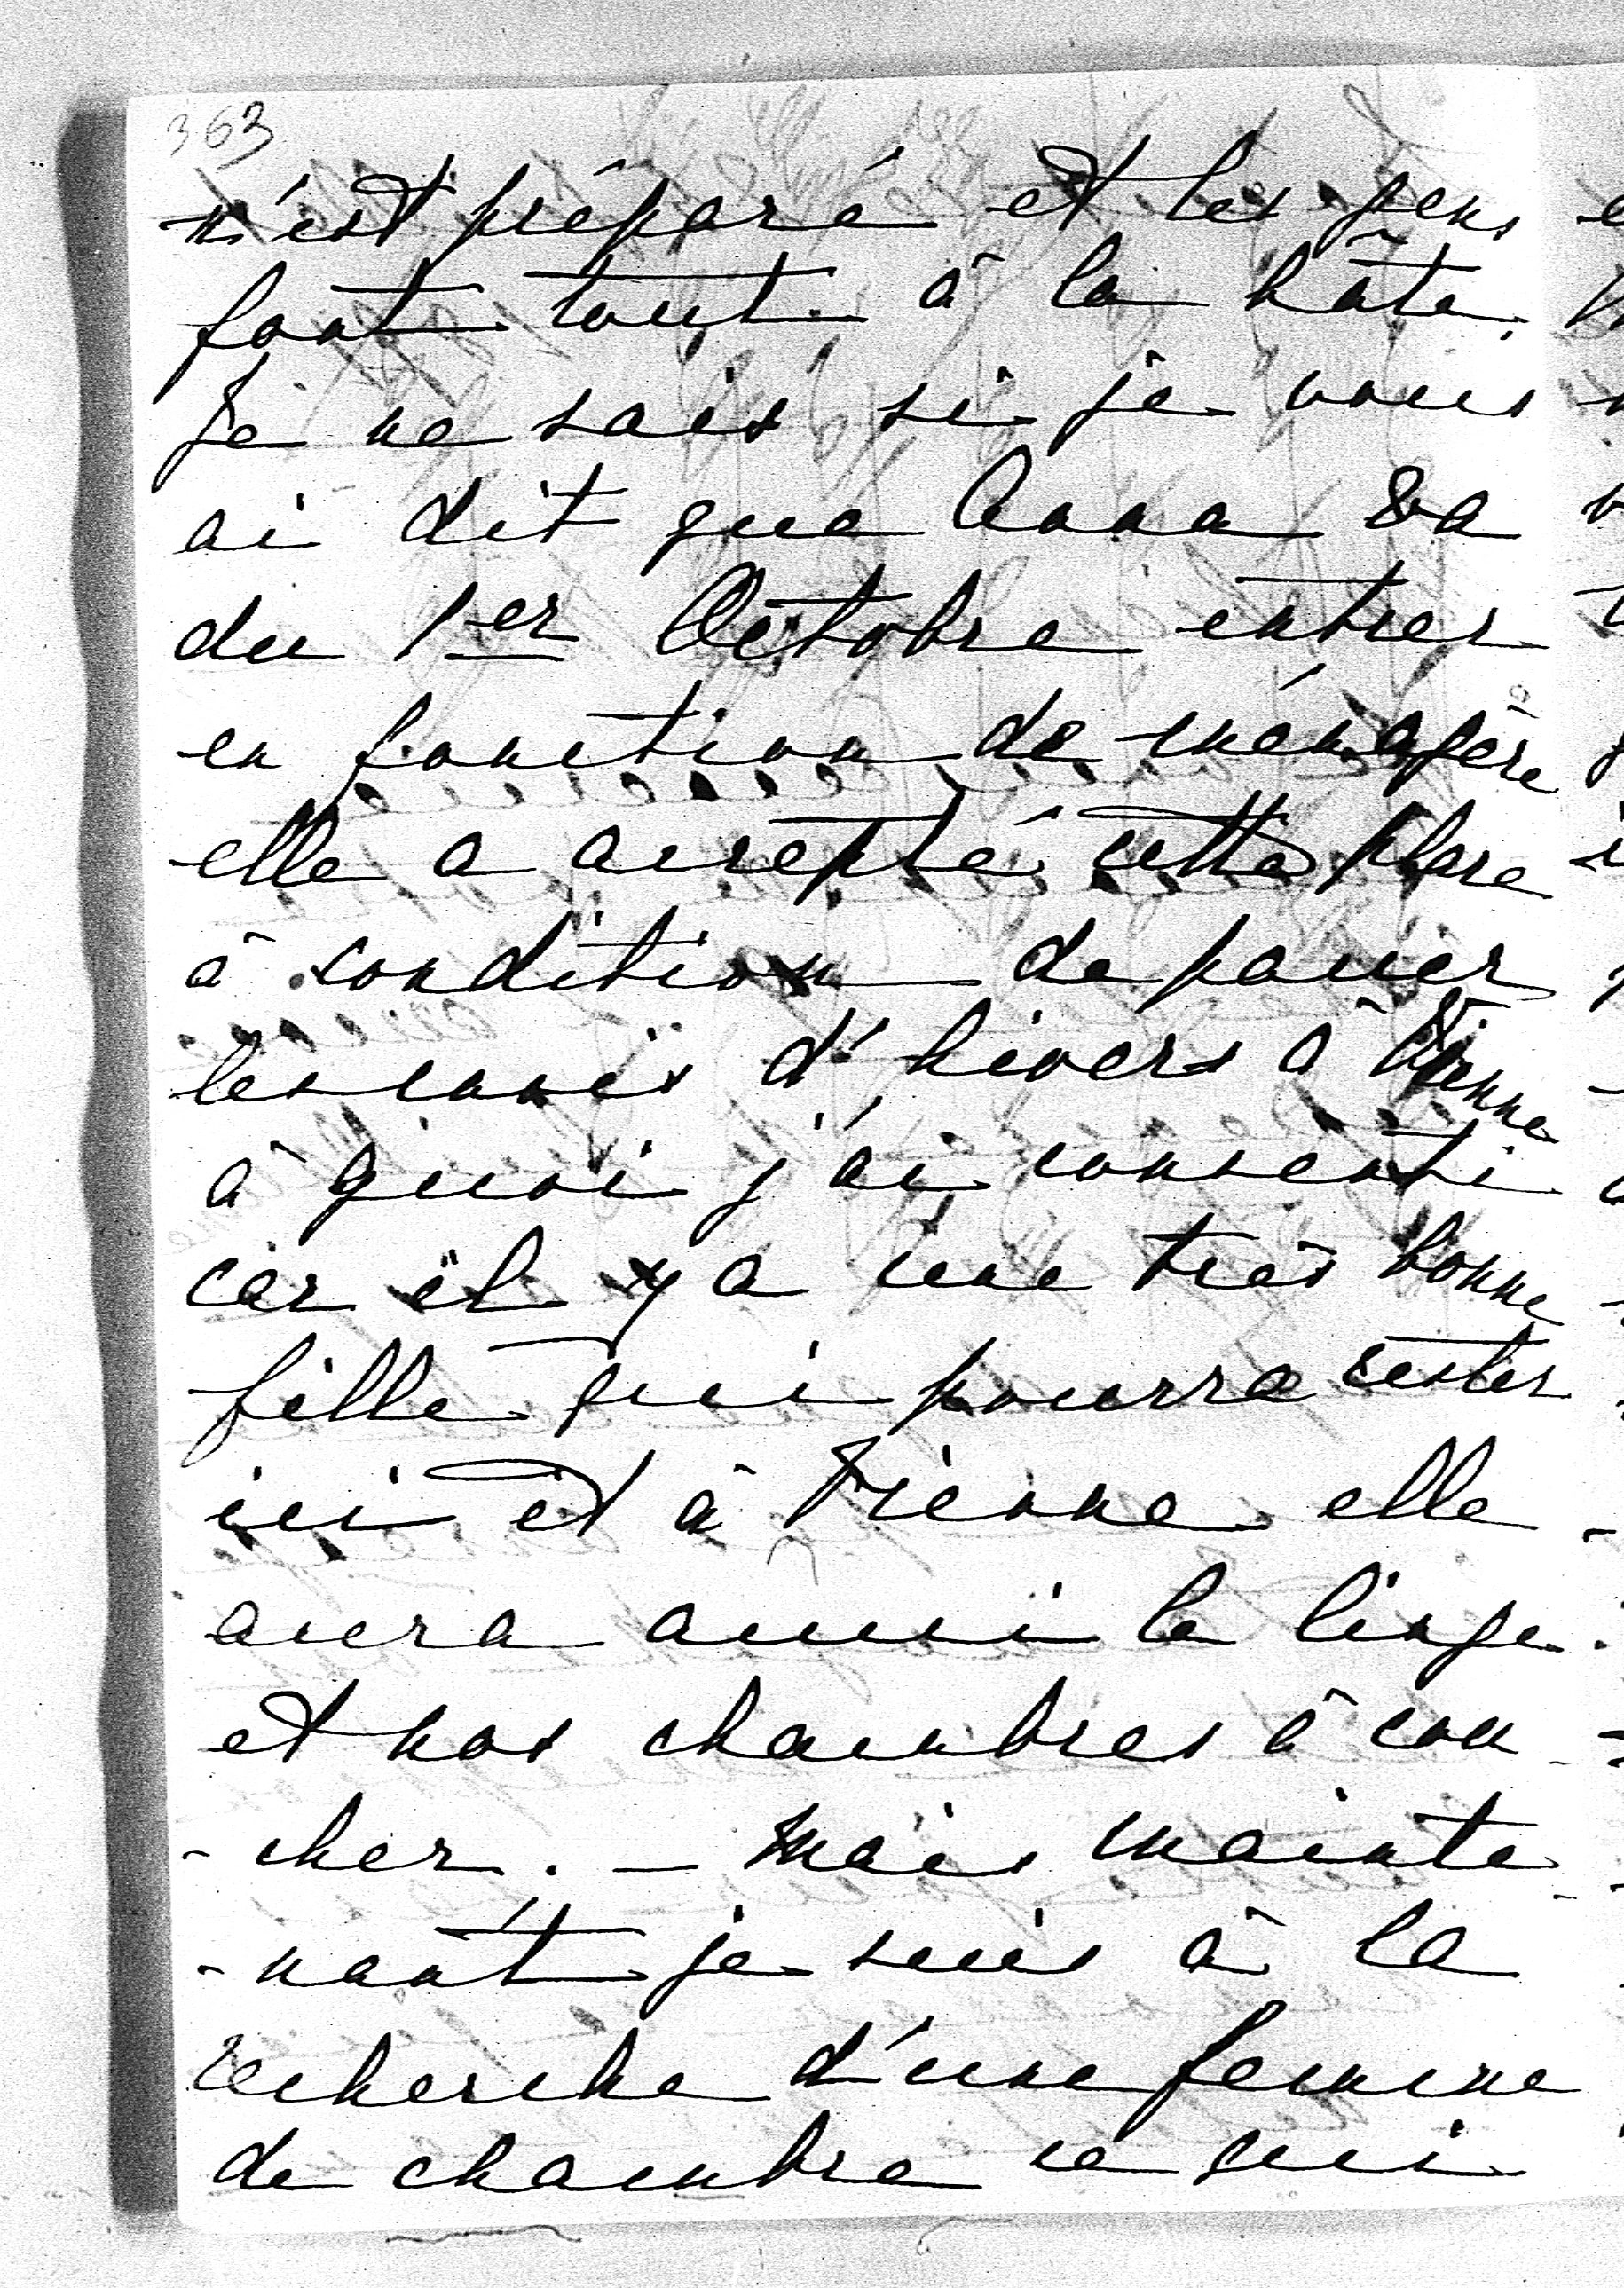 363
n'est préparé et les gens
font tout à la hâte.
Je ne sais si je vous
ai dit que Anna va
du 1er Octobre entrer
en fonction de ménagère
elle a accepté cette place
à condition de passer
les mois d'hivers à Vienne
à quoi j'ai consenti
car il y a une très bonne
fille qui pourra rester
ici et à Vienne elle
aura aussi le linge
et nos chambres à cou-
-cher. - Mais mainte-
-nant je suis à la
recherche d'une femme
de chambre ce qui